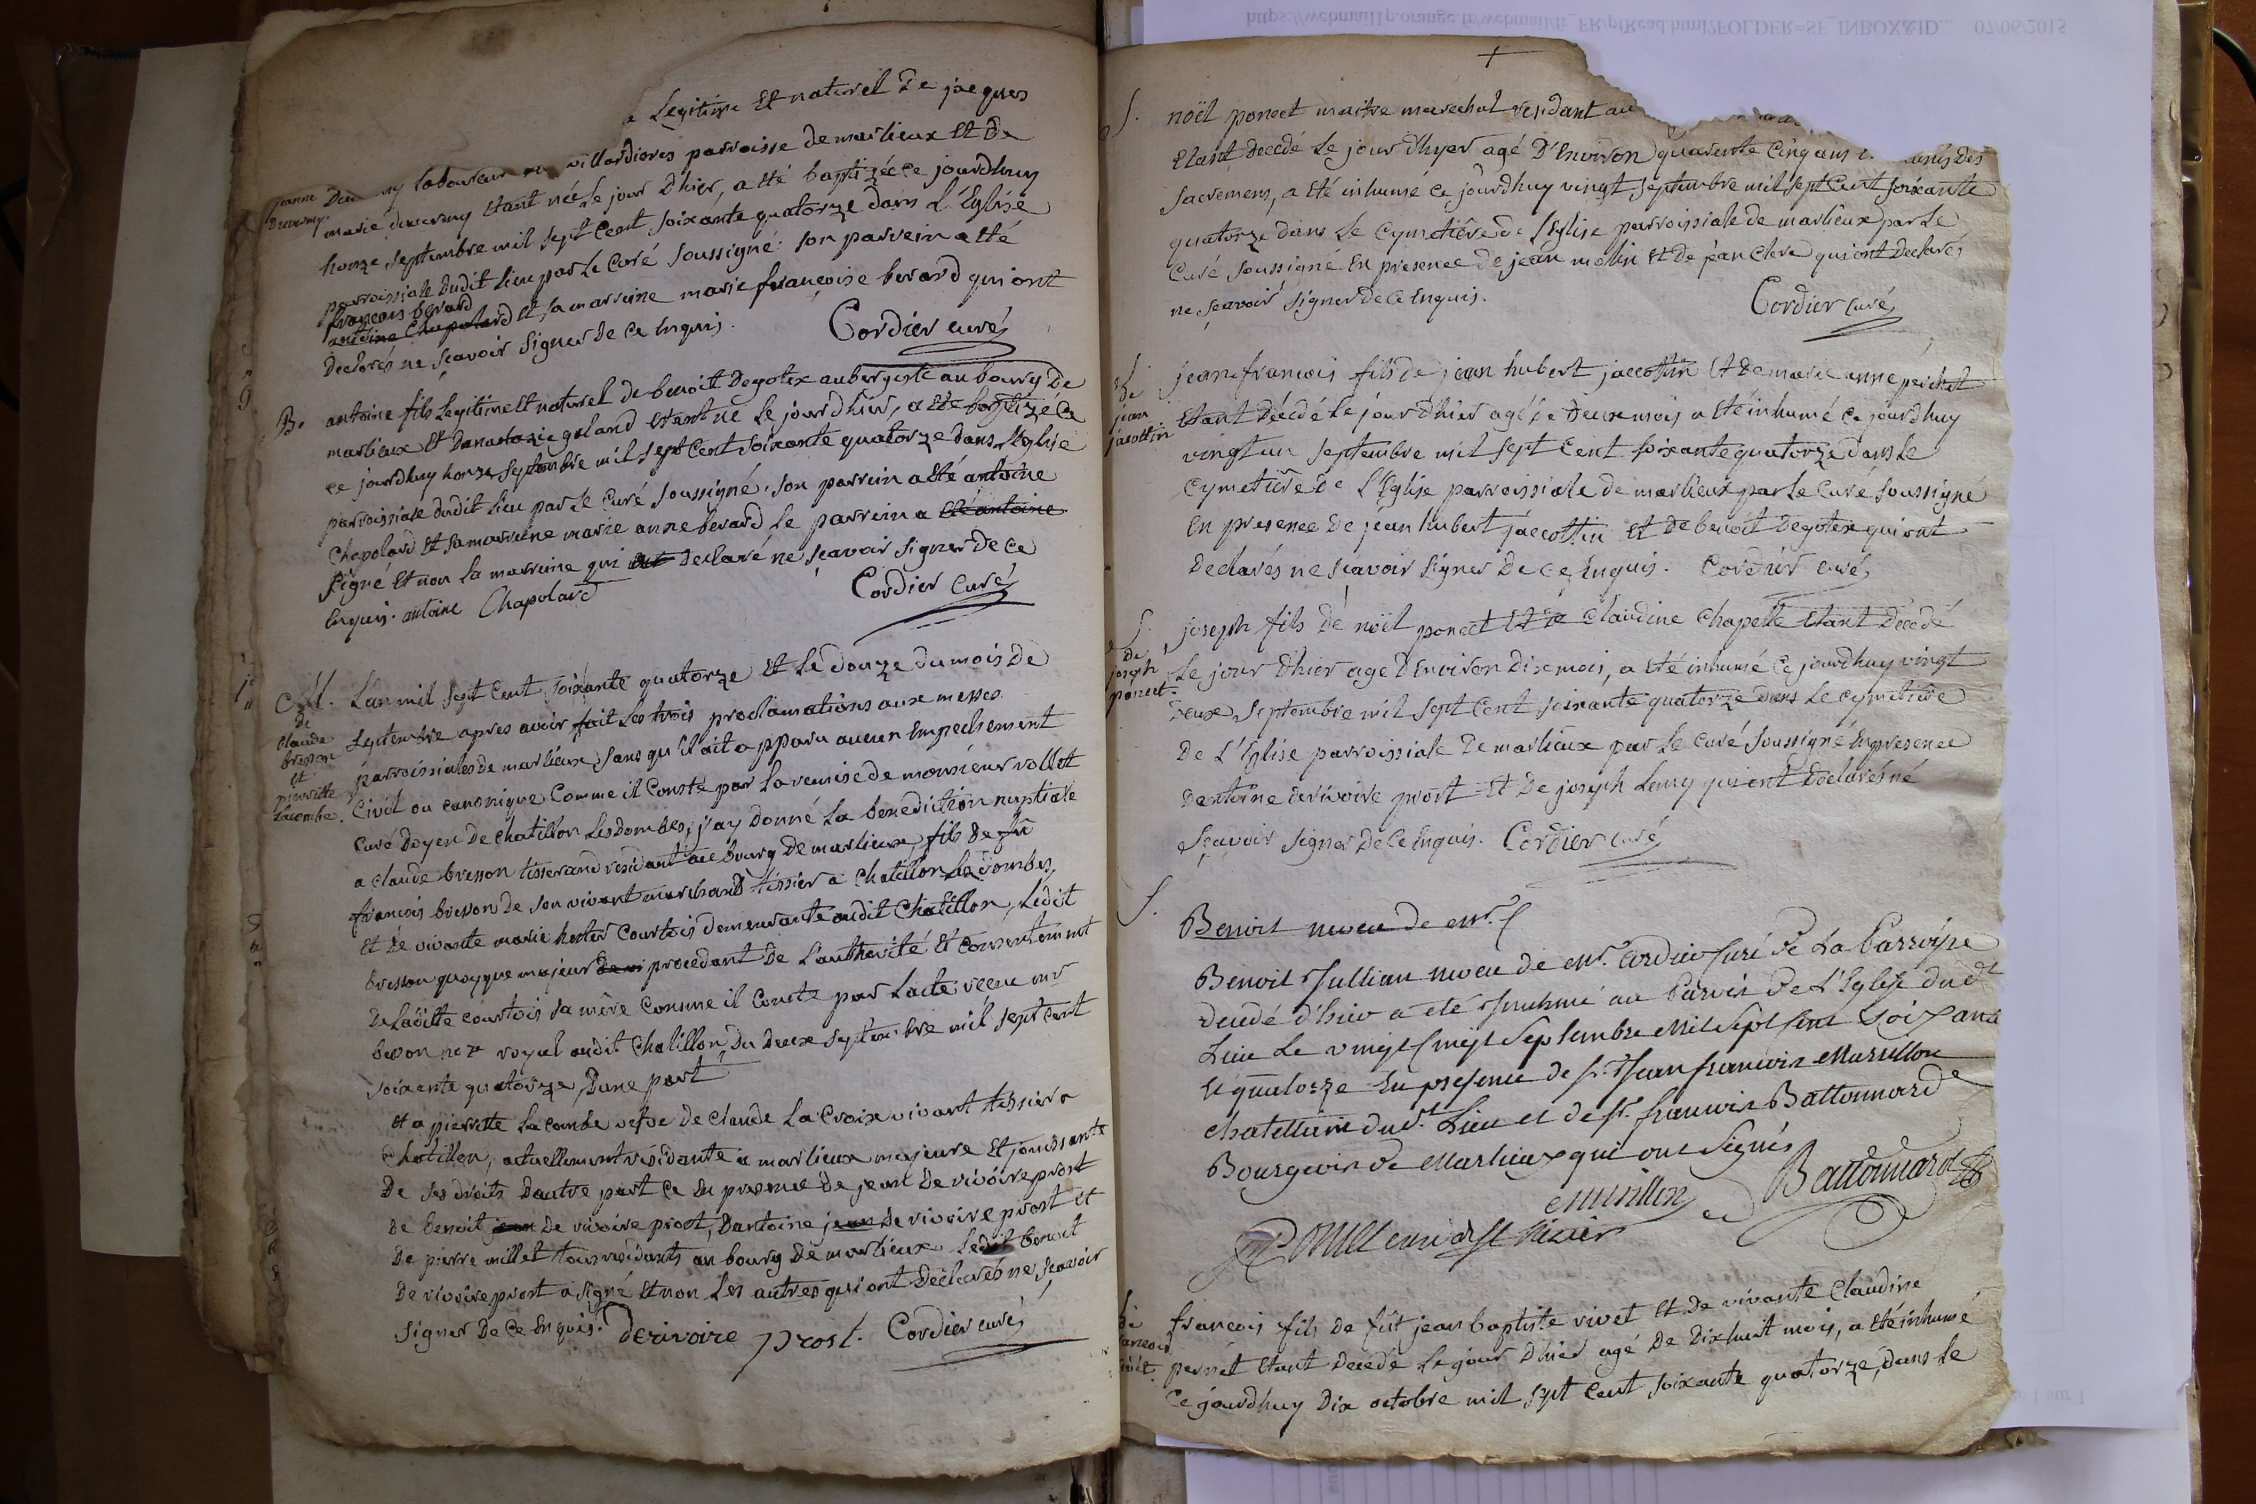 Legitime Et naturel De jacques
laboureur villardieres parroisse de marlieux Et De
jeanne
marie ducurny Etant née Le jour D'hier, a Eté baptizée ce jourdhuy
honze septembre mil sept Cent soixante quatorze dans L'Eglise
parroissiale dudit Lieu par Le Curé soussigné. son parrein a Eté
françois berard
antoine Chapolard Et sa marreine marie françoise berard qui ont
Declarés ne sçavoir signer De Ce Enquis. Cordier curé
B. antoine fils Legitime Et naturel de benoit Degotex aubergiste au bourg De
marlieux Et Danastazie galand Etant né Le jour d'hier, a Eté baptizé Ce
ce jourdhuy honze septembre mil sept Cent soixante quatorze dans L'Eglise
parroissiale dudit Lieu par Le Curé soussigné. son parrein a Eté antoine
Chapolard Et sa marreine marie anne berard Le parrein a Eté antoine
signé Et non La marreine qui Declaré ne sçavoir signer De Ce
Enquis. antoine Chapolard Cordier Curé
M. L'an mil sept Cent soixante quatorze Et Le douze du mois De
de
Claude
bresson
et
pierrette
Lacombe.
septembre apres avoir fait Les trois proclamations aux messes
parroissiales de marlieux sans qu'il ait apparu aucun Empechement
Civil ou canonique Comme il Conste par La remise de monsieur vollet
Curé Doyen De chatillon Lesdombes, j'ay Donné La benediction nuptiale
a claude bresson tisserand residant au bourg De marlieux, fils De fû
françois bresson De son vivant marchand tissier a chatillon Les Dombes
Et De vivante marie hester Courtois demeurante audit Chatillon, Ledit
bresson quoyque majeur procedant De L'autherité Et Consentement
De Ladite courtois sa mère Comme il Conste par Lacte reçeu mr
besson nore royal audit Chatillon Du Deux septembre mil sept Cent
soixante quatorze, D'une part
Et a pierrette La combe vefve De Claude La Croix vivant tissier a
Chatillon, actuellement residante a marlieux majeure Et jouissante
De ses droits Dautre part Ce En presence De jean De rivoire prost
De benoit jean De rivoire prost, Dantoine jean De rivoire prost Et
De pierre millet tous residants au bourg De marlieux Ledit benoit
De rivoire prost a signé Et non Les autres qui ont Declarés ne sçavoir
signer De Ce Enquis. Derivoire prost. Cordier curé
S. noël ponect maitre marechal residant au
Etant Decedé Le jour d'hyer agé D'Environ quarante Cinq ans des
sacremens, a Eté inhumé Ce jourdhuy vingt septembre mil sept Cent soixante
quatorze dans Le Cymetière De L'Eglise parroissiale de marlieux par Le
Curé soussigné En presence De jean molin Et De jean Clere qui ont Declarés
ne sçavoir signer De Ce Enquis. Cordier Curé
S.
de
jean
jacottin
jean françois fils De jean hubert jaccottin Et De marie anne péichet
Etant Décédé Le jour D'hier agé De Deux mois a Eté inhumé Ce jourdhuy
vingt un septembre mil sept Cent soixante quatorze dans Le
Cymetière De L'Eglise parroissiale De marlieux par Le Curé soussigné
En presence De jean hubert jaccottin Et De benoit Degotex qui ont
Declarés ne sçavoir signer De Ce Enquis. Cordier curé
S.
de
joseph
ponect.
joseph fils De noël ponect Et De Claudine Chapelle Etant Decedé
Le jour D'hier agé D'Environ Dix mois, a Eté inhumé Ce jourdhuy vingt
Deux septembre mil sept Cent soixante quatorze Dans Le Cymetière
De L'Eglise parroissiale De marlieux par Le Curé soussigné En presence
Dantoine Derivoire prost Et De joseph Leury qui ont Declarés né
sçavoir signer De Ce Enquis. Cordier curé
S.
Benoit neveu de Mr. C
Benoit Jullian neveu de Mr. Cordier Curé De La Parroisse
decedé d'hier a eté Inhumé au Parvis De L'Eglise dudt
Lieu Le vingt Cinq Septembre Mil Sept Cent Soixante
Et quatorze En présence de Sr. Jean françois Marillon
chatellain dudt. Lieu et de Sr. francois Battonnard
Bourgeois de Marlieux qui ont Signés
Marillon Battonnard
curé de St
de
francois
vivet.
françois fils de fût jean baptiste vivet Et De vivante Claudine
pernet Etant Decedé Le jour D'hier agé De Dix huit mois, a Eté inhumé
Ce jourdhuy Dix octobre mil sept Cent soixante quatorze, dans Le